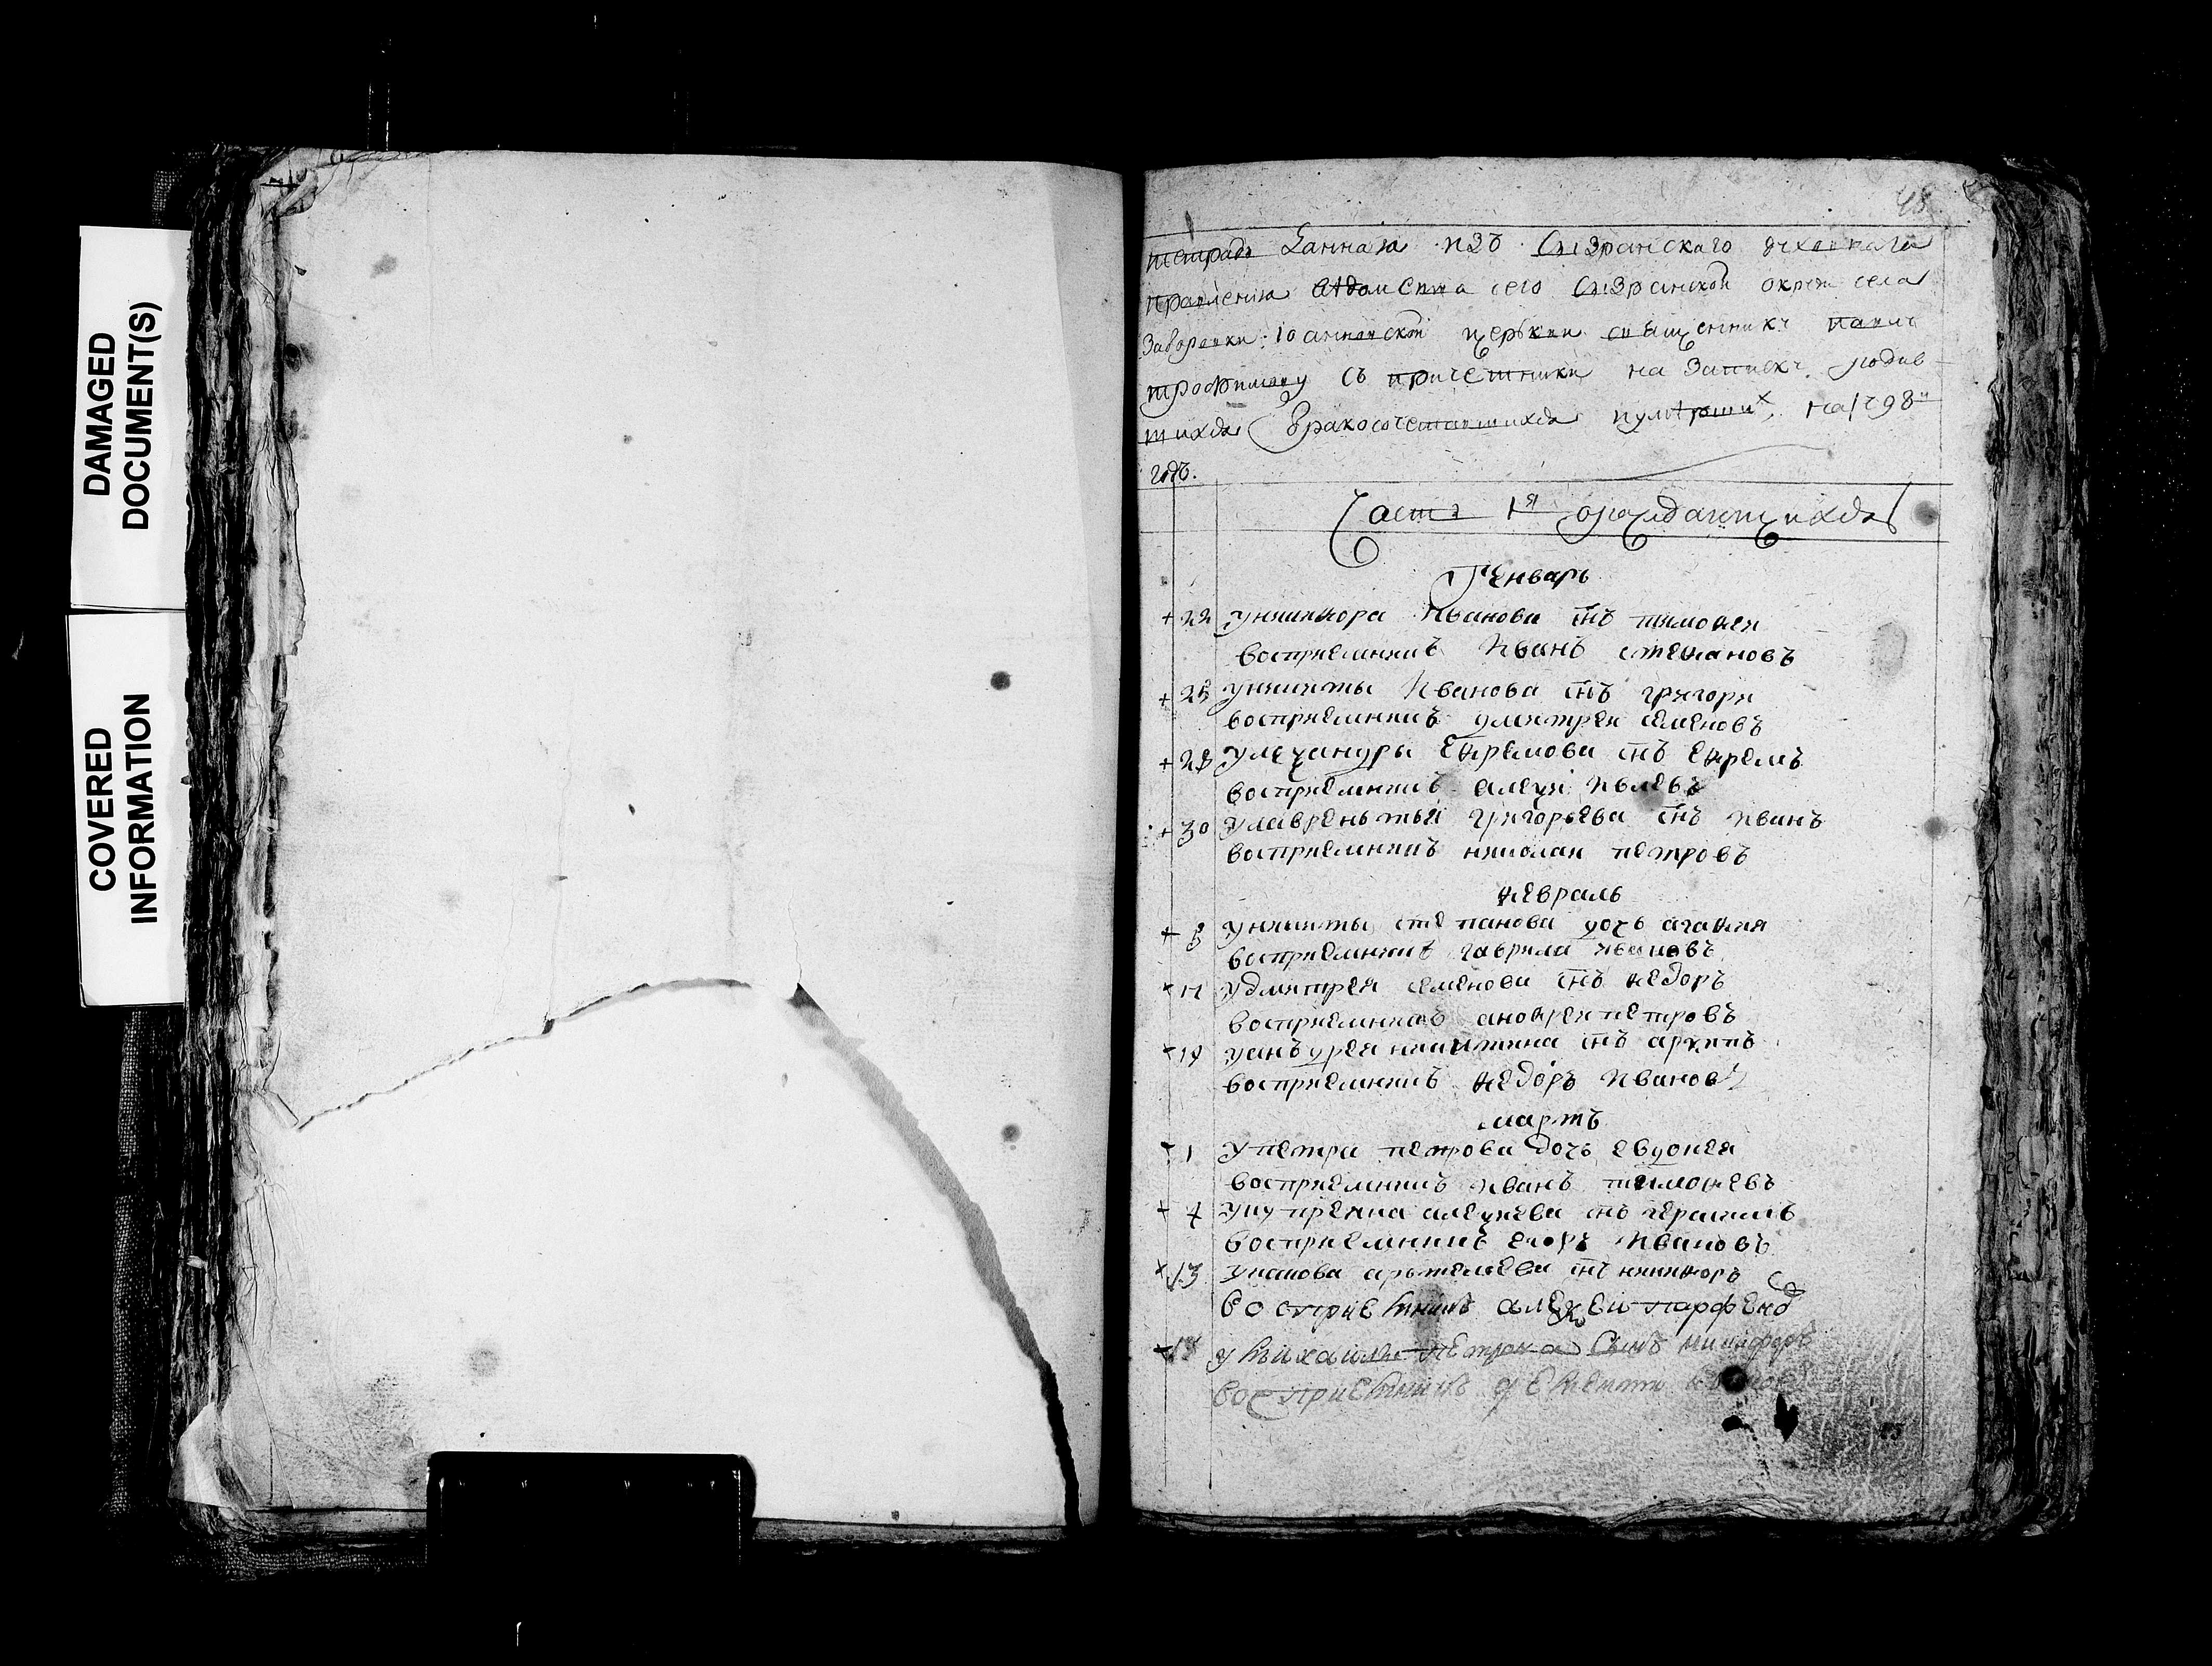 DAMAGED
DOCUMENT(S)
COVERED
INFORMATION
48
тетрадь данная изъ Сызранскаго духовнаго
правления ведомства сего Сызранской округи села
Заборовки Иоанновской церкви священнику
трофимову съ причетники на записку родив
шихся бракосочетавшихся и умерших на 1798й
годъ.
Часть 1я о раждающихся
Генварь
+ 22 у никифора Иванова снъ тимофеи
восприемникъ Иванъ степановъ
+ 25 у никиты Иванова снъ григори
восприемникъ дмитреи семеновъ
+ 28 у алеѯандры ефремова снъ ефремъ
восприемникъ алеѯи
+ 30 у лаврентья григорьева снъ иванъ
восприемникъ николаи петровъ
февраль
+ 8 у никиты степанова дочь агафия
восприемникъ гаврила ивановъ
+ 11 у дмитрея семенова снъ федоръ
восприемникъ андреи петровъ
+ 14 у анъдрея никитина снъ архипъ
восприемникъ федоръ ивановъ
мартъ
+ 1 у петра петрова дочь евдокея
восприемникъ иванъ тимофеевъ
+ 4 у куприяна алеѯеева снъ герасимъ
восприемникъ егоръ ивановъ
+ 13 у якова артемьева снъ никифоръ
восприемникъ алеѯеи парфенов
+ у михаила петрова сынъ никифоръ
восприемникъ дементи